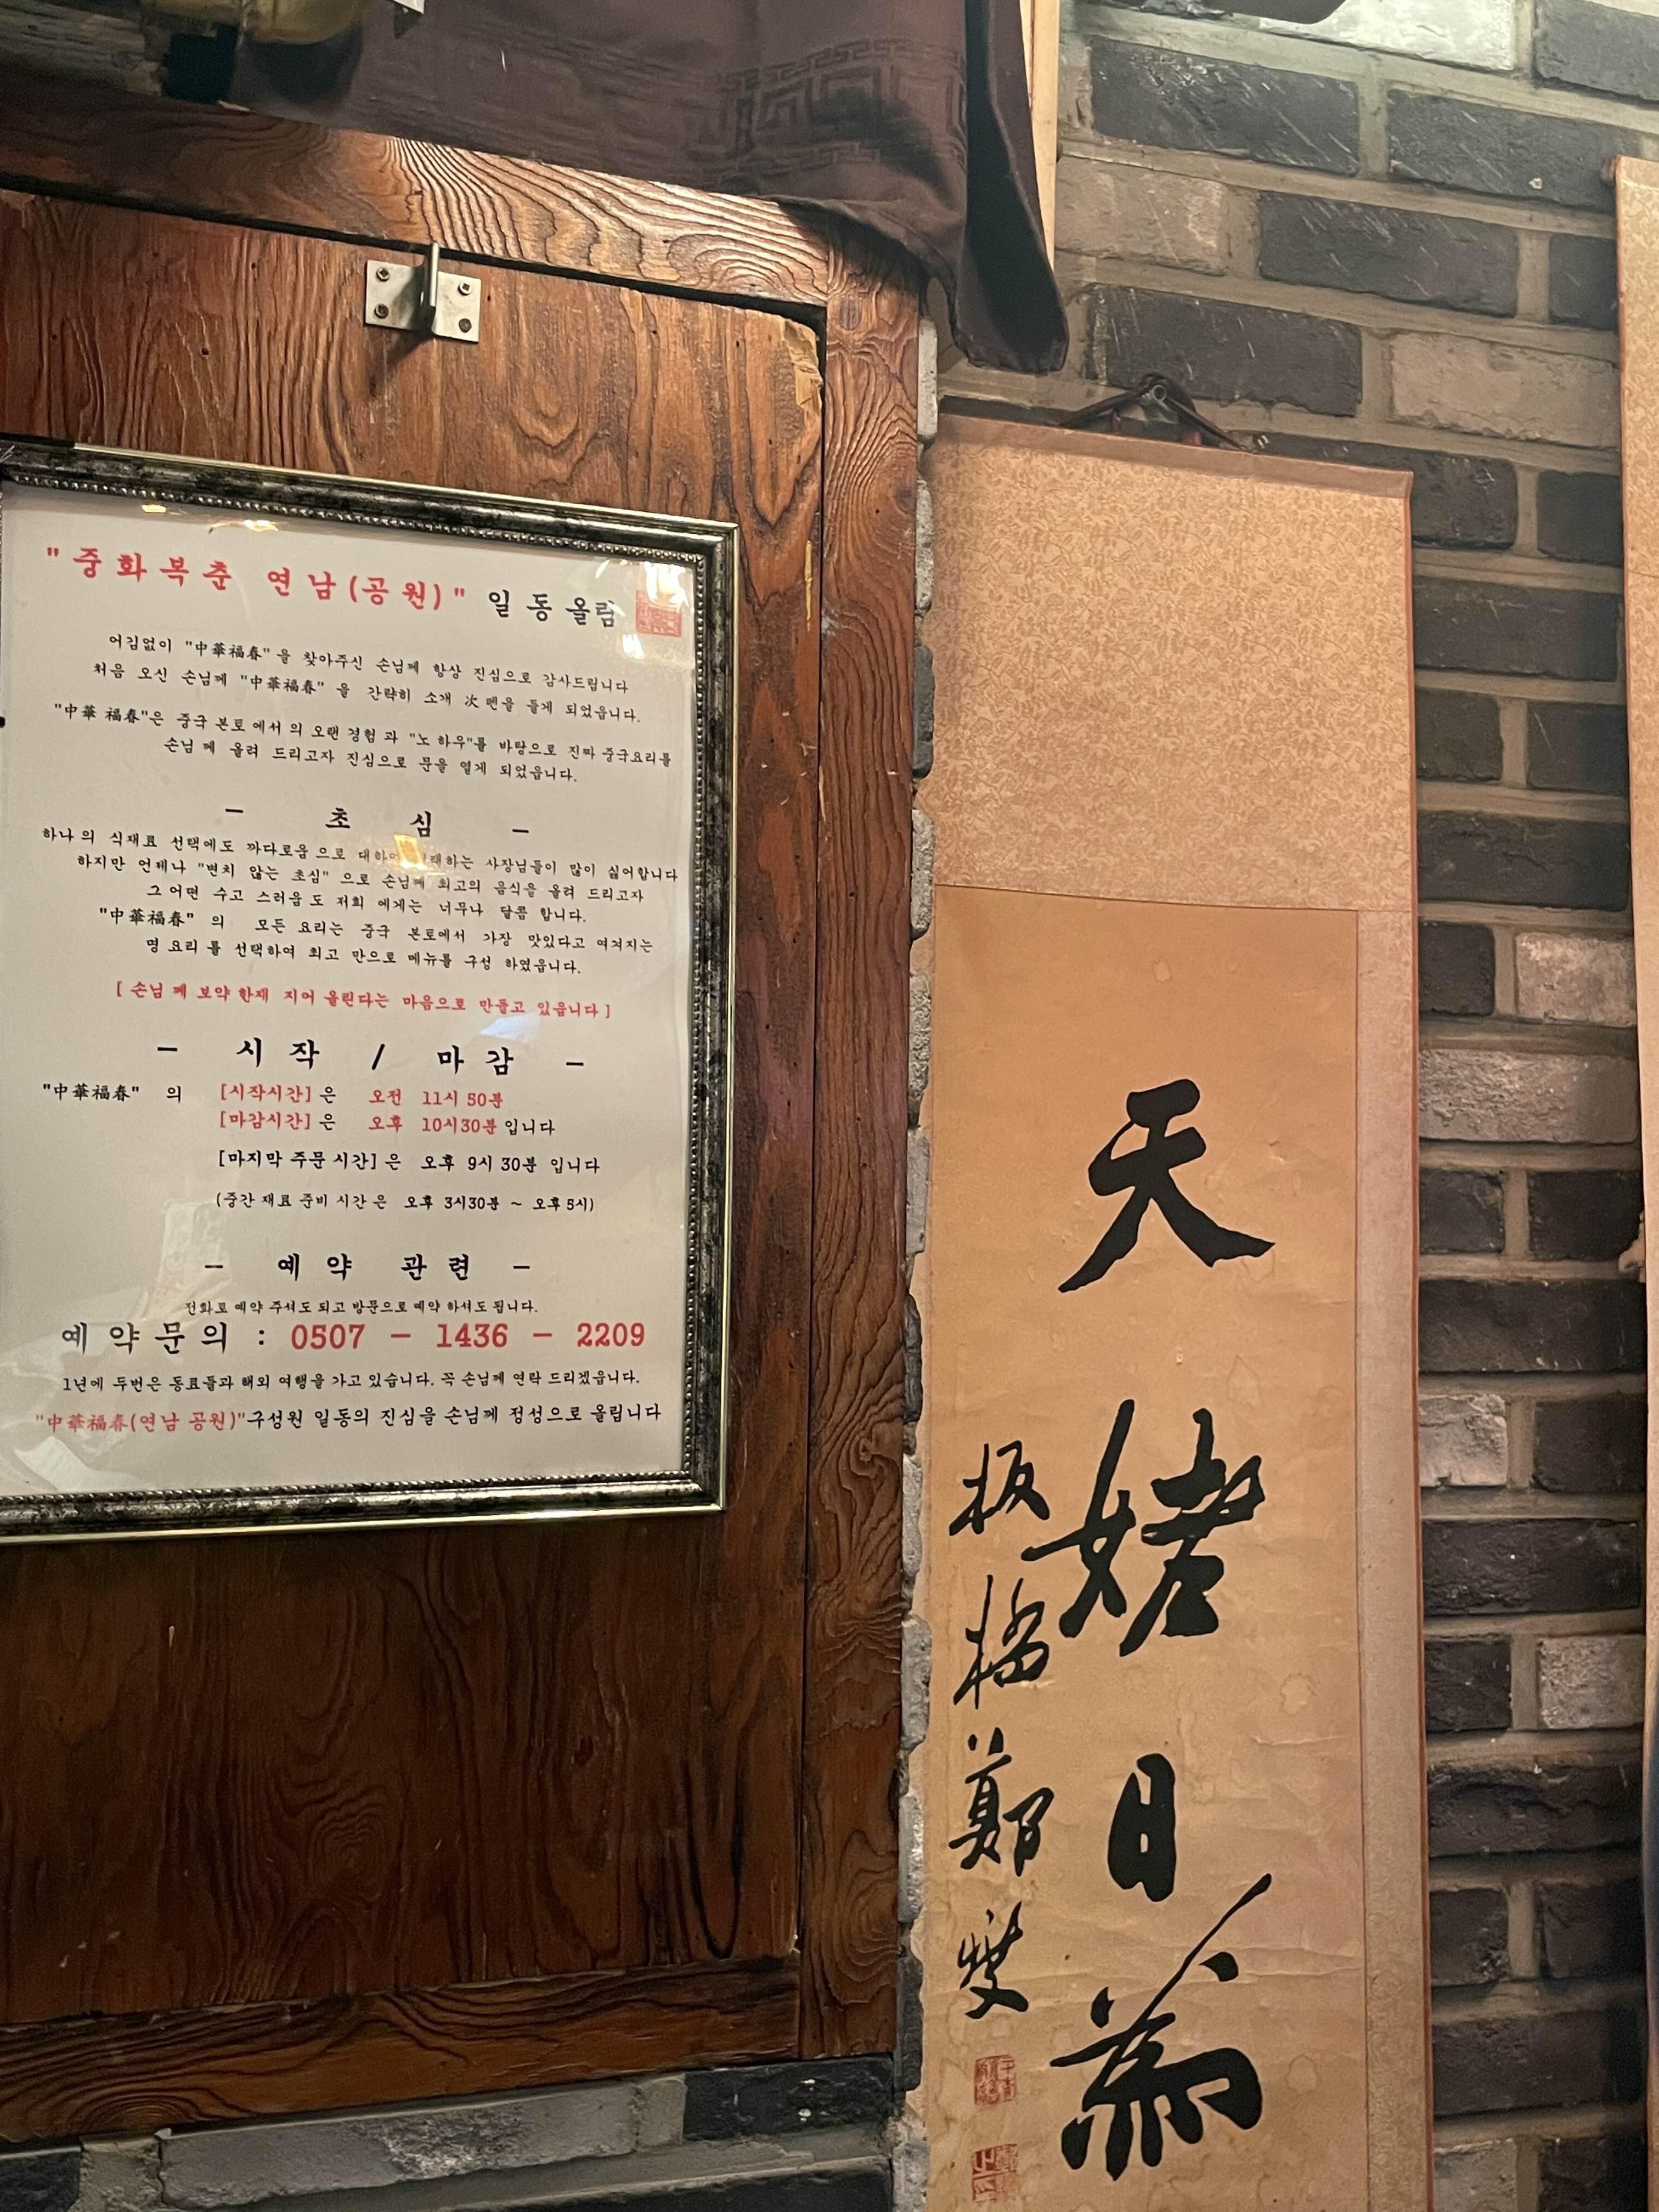 "중화복춘 연남(공원)" 일동올림
어김없이 "中華福春"을 찾아주신 손님께 항상 진심으로 감사드립니다
처음 오신 손님께 "中華福春" 을 간략히 소개 次 펜을 들게 되었읍니다.
"中華 福春"은 중국 본토 에서 의 오랜 경험 과 "노 하우"를 바탕으로 진짜 중국요리를
손님 께 올려 드리고자 진심으로 문을 열게 되었읍니다.
- 초 심 -
하나 의 식재료 선택에도 까다로움 으로 대하여 거래하는 사장님들이 많이 싫어합니다
하지만 언제나 "변치 않는 초심" 으로 손님께 최고의 음식을 올려 드리고자
그 어떤 수고 스러움 도 저희 에게는 너무나 달콤 합니다.
"中華福春" 의 모든 요리는 중국 본토에서 가장 맛있다고 여겨지는
명 요리 를 선택하여 최고 만으로 메뉴를 구성 하였읍니다.
[ 손님 께 보약 한재 지어 올린다는 마음으로 만들고 있읍니다 ]
- 시 작 / 마 감 -
"中華福春" 의 [시작시간] 은 오전 11시 50분
[마감시간] 은 오후 10시30분 입니다
[마지막 주문 시간] 은 오후 9시 30분 입니다
(중간 재료 준비 시간 은 오후 3시30분 ~ 오후 5시)
- 예 약 관 련 -
전화로 예약 주셔도 되고 방문으로 예약 하셔도 됩니다.
예 약 문 의 : 0507 - 1436 - 2209
1년에 두번은 동료들과 해외 여행을 가고 있습니다. 꼭 손님께 연락 드리겠읍니다.
"中華福春(연남 공원)"구성원 일동의 진심을 손님께 정성으로 올립니다
天姥日為
板橋鄭燮